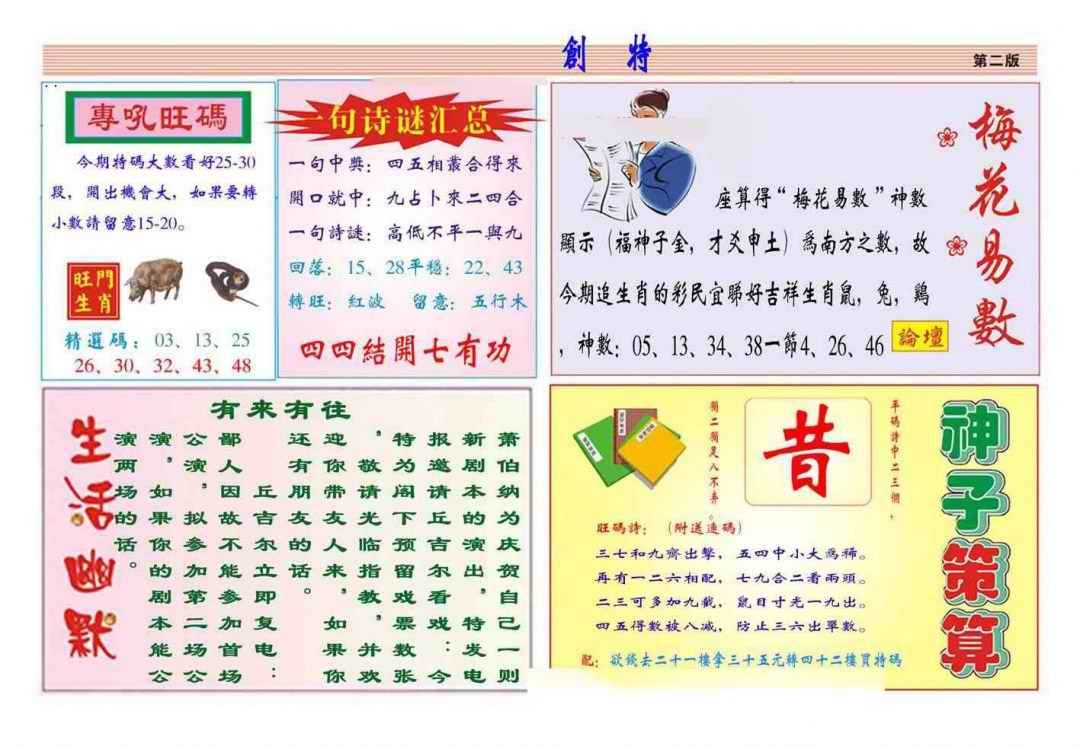 創 特
第二版
專吼旺碼
今期特碼大數看好25-30
段，開出機會大，如果要轉
小數請留意15-20。
旺門
生肖
精選碼：03、13、25
26、30、32、43、48
一句诗谜汇总
一句中獎：四五相叢合得來
開口就中：九占卜來二四合
一句詩謎：高低不平一與九
回落：15、28平穩：22、43
轉旺：紅波 留意：五行木
四四結開七有功
梅花易數
座算得“梅花易數”神數
顯示（福神子金，才爻申土）爲南方之數，故
今期追生肖的彩民宜睇好吉祥生肖鼠，兔，鷄
，神數：05、13、34、38一節4、26、46
論壇
生活幽默
有来有往
萧伯纳为庆贺自己一则
新剧本的演出，特发电
报邀请丘吉尔看戏：今
特为阁下预留戏票数张
，敬请光临指教，并欢
迎你带友人来，如果你
还有朋友的话。
丘吉尔立即复电：
鄙人因故不能参加首场
公演，拟参加第二场公
演，如果你的剧本能公
演两场的话。
神子策算
平碼詩中二三個，
昔
二 是八不弃。
旺碼詩：（附送連碼）
三七和九齊出擊，五四中小大爲稀。
再有一二六相配，七九合二看兩頭。
二三可多加九載，鼠目寸光一九出。
四五得數被八减，防止三六出單數。
配：欲錢去二十一樓拿三十五元轉四十二樓買特碼